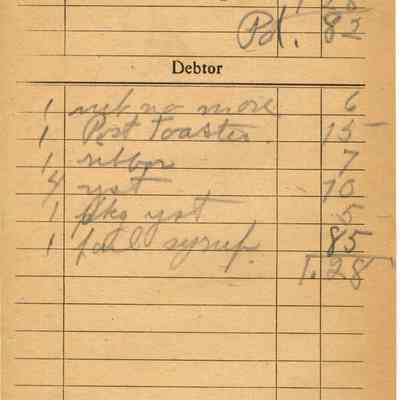 1 28
Pd. 82
Debtor
1 rub no more 6
1 Post Toasties 15
1 ribbon 7
4 yst 10
1 pkg yst 5
1 pail syrup 85
1.28